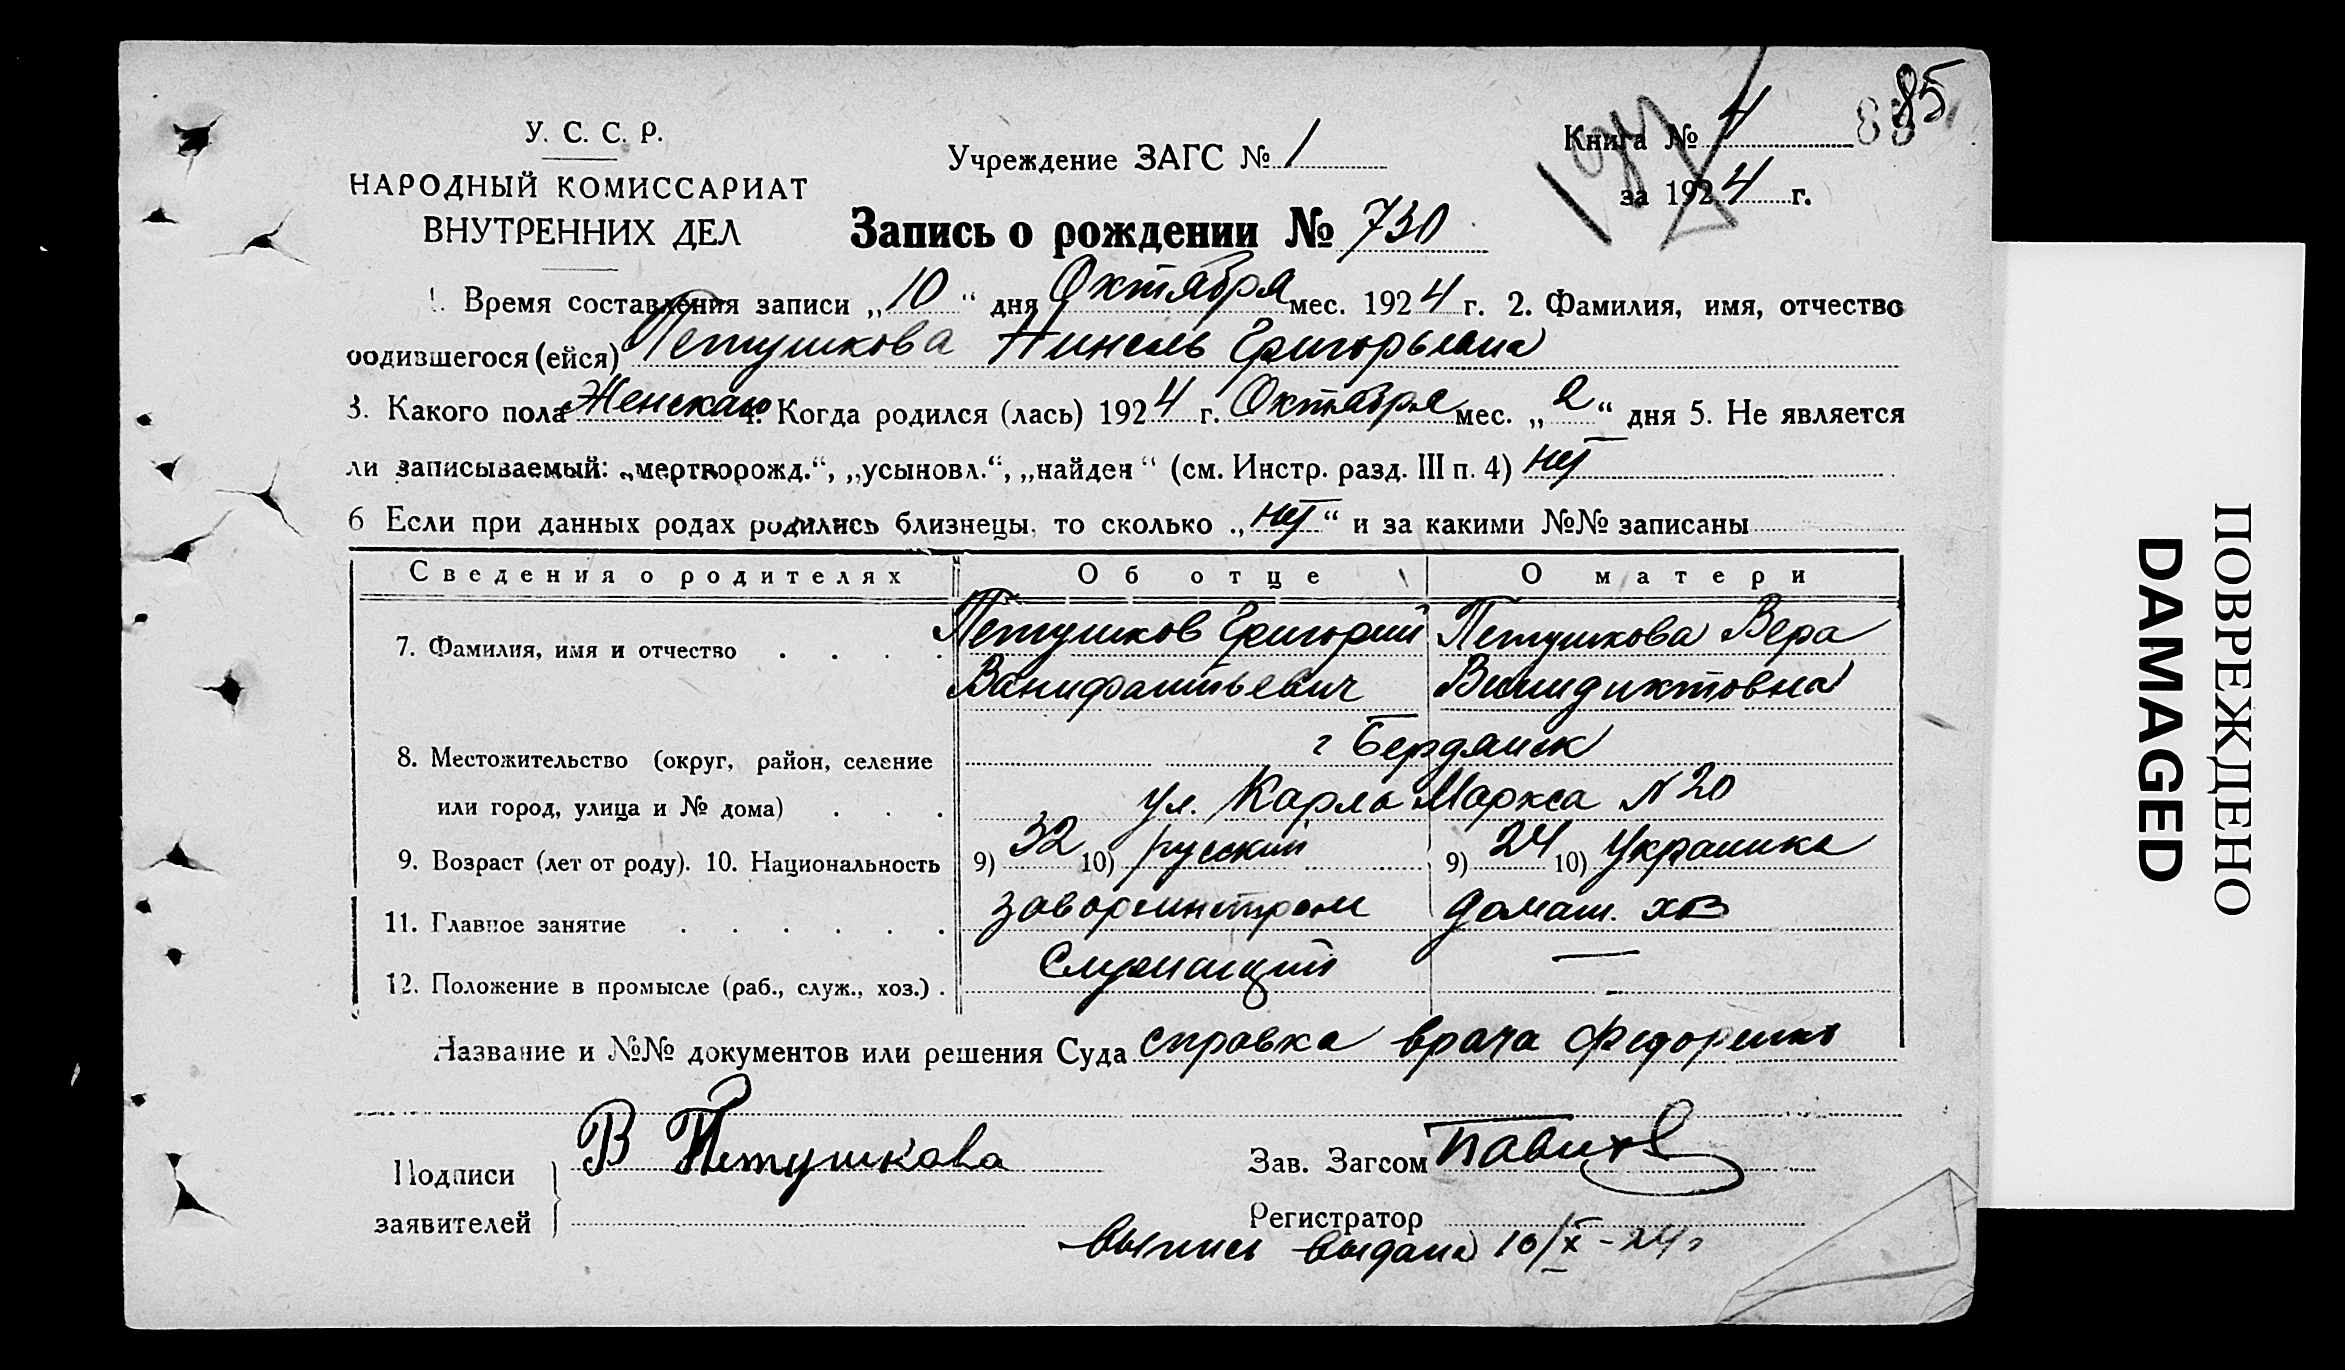 У. С. С. Р.
НАРОДНЫЙ КОМИССАРИАТ
ВНУТРЕННИХ ДЕЛ
Учреждение ЗАГС № 1
Книга № 4
85
за 1924 г.
Запись о рождении № 730
1. Время составления записи „10“ дня Октября мес. 1924 г. 2. Фамилия, имя, отчество
родившегося (ейся) Петушкова Нинель Григорьевна
3. Какого пола Женская 4. Когда родился (лась) 1924 г. Октября мес. „2“ дня 5. Не является
ли записываемый: „мертворожд.“, „усыновл.“, „найден“ (см. Инстр. разд. III п. 4) нет
6 Если при данных родах родились близнецы, то сколько „нет“ и за какими №№ записаны
Сведения о родителях Об отце О матери
7. Фамилия, имя и отчество . . . . Петушков Григорий Петушкова Вера
Ванифатьевич Винидиктовна
8. Местожительство (округ, район, селение г Бердянск
или город, улица и № дома) . . . ул. Карла Маркса N 20
9. Возраст (лет от роду). 10. Национальность 9) 32 10) русский 9) 24 10) Украинка
11. Главное занятие . . . . . . домаш. хоз
12. Положение в промысле (раб., служ., хоз.) . Служащий —
Название и №№ документов или решения Суда справка врача Федоренко
Подписи
заявителей
В Петушкова
Зав. Загсом
Регистратор
выпись выдана 10/X - 24 г
ПОВРЕЖДЕНО
DAMAGED